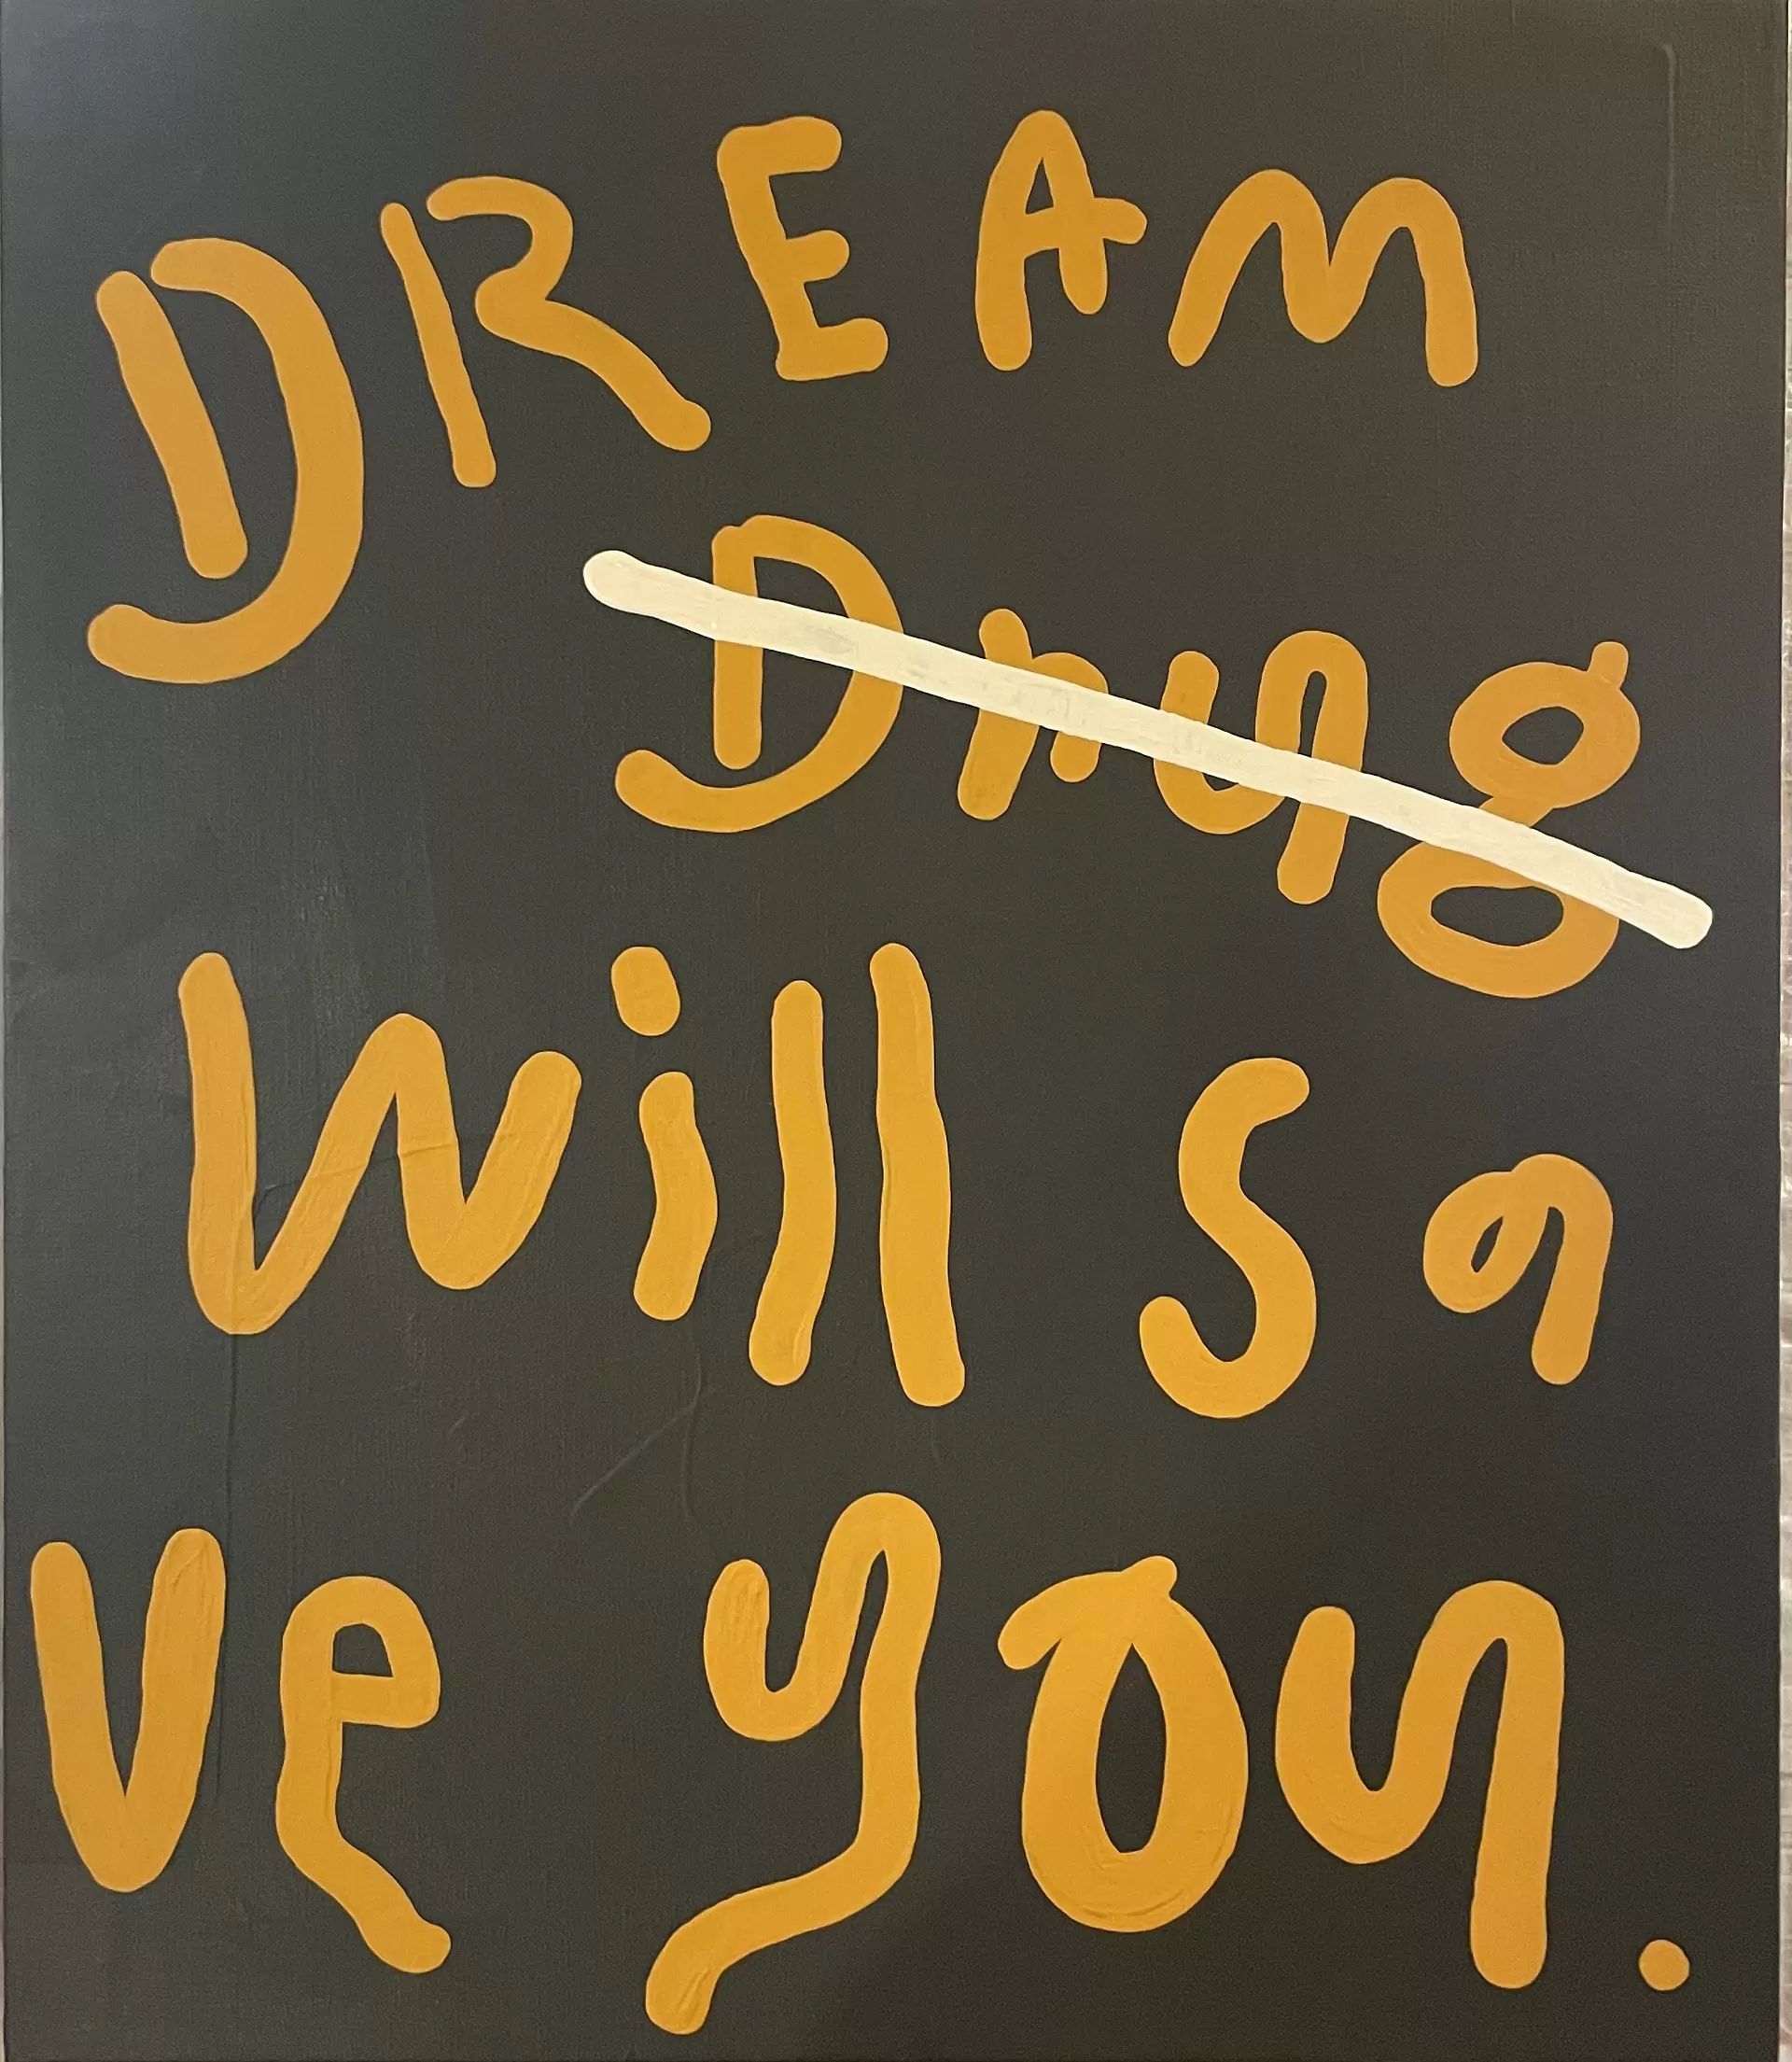 DREAM
Drug
Will Sa
ve you.